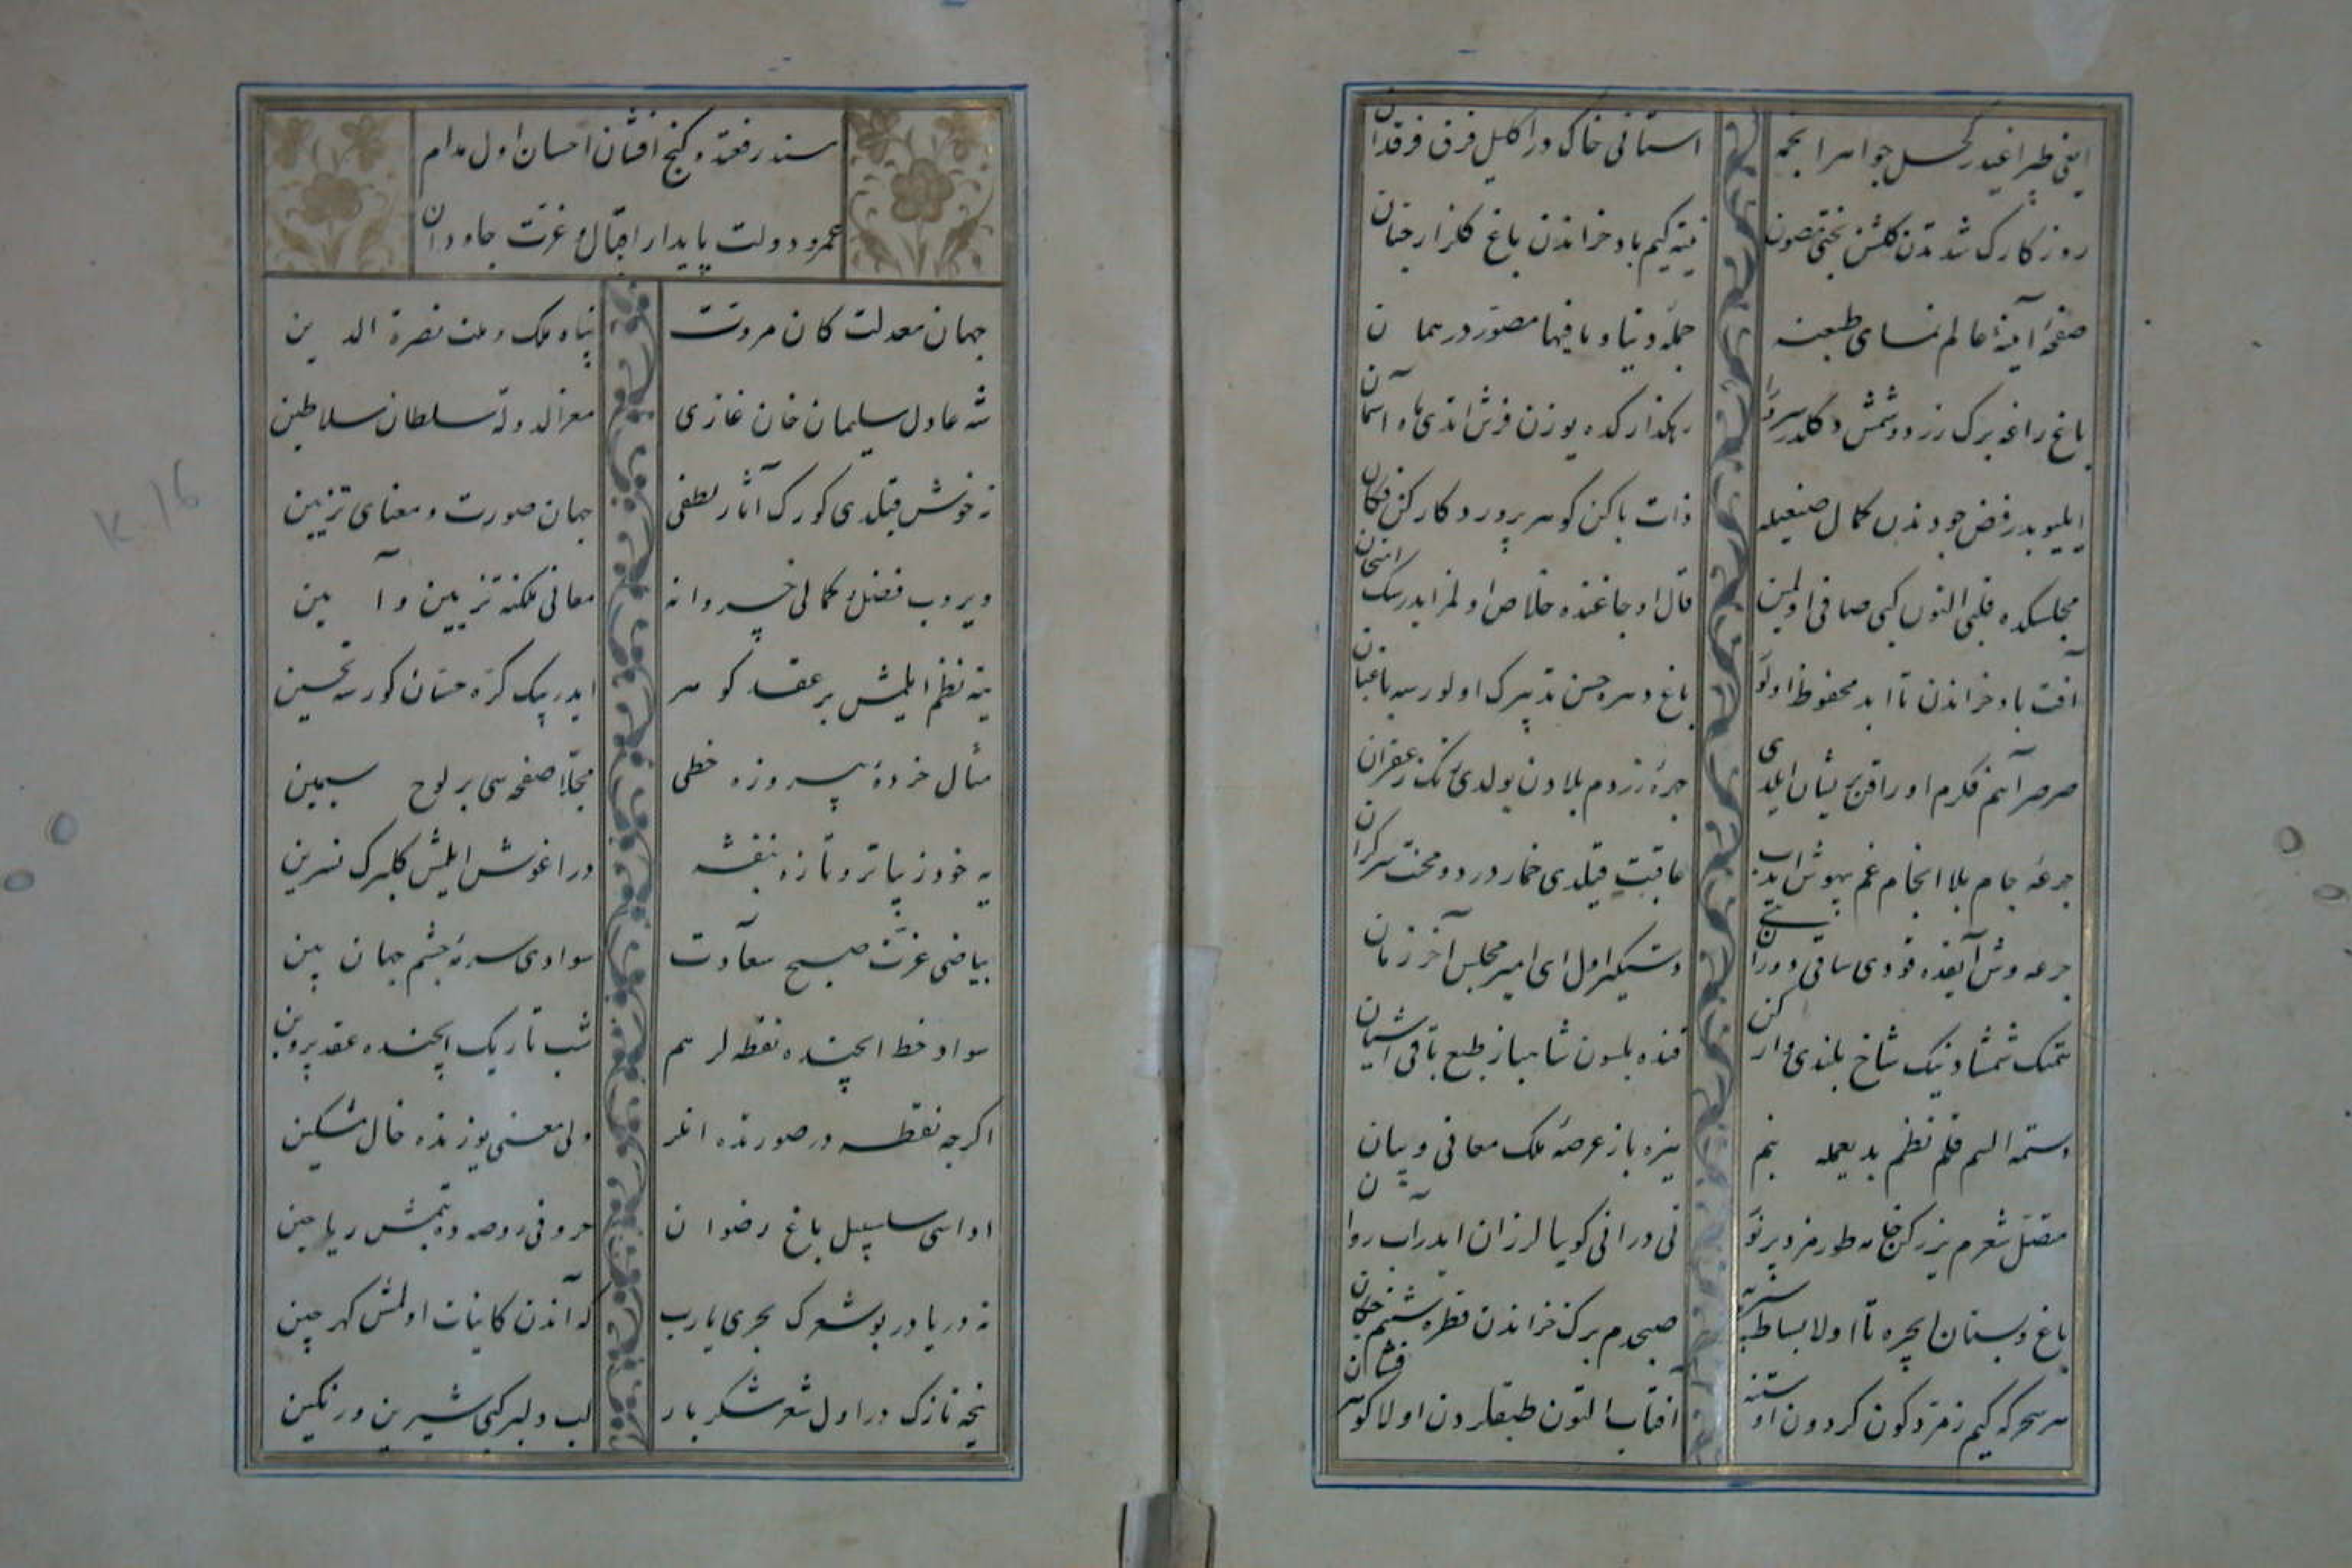 استانی خاک در اکلیل فرق فرقدان
روزکارک تندندن کلشن بختی مصون
نیته کیم باد خزاندن باغ کلزار جنان
صفحهٔ آیینهٔ عالم نمای طبعنه
جمله دنیا و مافیها مصور در همان
باغ راغه برک زر دوشمش
رهکذارکده یوزن فرش اتدی ماه آسمان
ذات پاکن کوهر پرورد کار کن فکان
مجلسکده قلبی التون کبی صافی اولمین
قال اوجاغنده خلاص اولمز ایدرسک امتحان
آفت باد خزاندن تا ابد محفوظ اولور
باغ دهره حسن تدبیرک اولورسه باغبان
صرصر آهم فکرم اوراقن پریشان ایلدی
چهرهٔ زردم بلادن بولدی رنک زعفران
جرعهٔ جام بلا انجام غم بیهوش ایدب
عاقبت قیلدی خمار درد و محنت سرکران
جرعه وش آیغده قودی ساقی دوران
دستکیر اول ای امیر مجلس آخر زمان
همتک شمشادینک شاخ بلندی وارکن
قنده بلسون شاهباز طبع باقی آشیان
دستمه السم قلم نظم بدیعمله بنم
نیزه باز عرصهٔ ملک معانی و بیان
باغ و بستان ایچره تا اولا بساط
صبحدم برک خزاندن قطرهٔ شبنم چکان
هر سحرکه کیم زمرد کون کردون اوستنه
آفتاب التون طبقلردن اولا کوهر فشان
مسند رفعتده کنج افشان احسان اول مدام
عمر و دولت پایدار اقبال و عزت جاودان
جهان معدلت کان مروت
پناه ملک و ملت نصرة الدین
شه عادل سلیمان خان غازی
معز الدوله سلطان سلاطین
نه خوش قیلدی کورک آثار لطفی
جهان صورت و معنای تزیین
ویروب فضل و کمالی خسروانه
معانی ملکنه تزیین و آیین
ینه نظم ایلمش بر عقد کوهر
ایدر بیک کره حسان کورسه تحسین
مثال خردهٔ پیروزه خطی
مجلا صفحه سی بر لوح سیمین
یه خود زیبا تر و تازه بنفشه
در آغوش ایلمش کلبرک نسرین
بیاضی غرت صبح سعادت
سوادی سرمهٔ چشم جهان بین
سواد خط ایچنده نقطه لر هم
شب تاریک ایچنده عقد پروین
اکرچه نقطه در صورتده انلر
ولی معنی یوزنده خال مشکین
اداسی سلسبیل باغ رضوان
حروفی روضه ده بتمش ریاحین
نه دریادر بو شعرک بحری یارب
که آندن کاینات اولمش کهر چین
نیجه نازک در اول شعر شکربار
لب دلبر کبی شیرین و رنکین
K.16